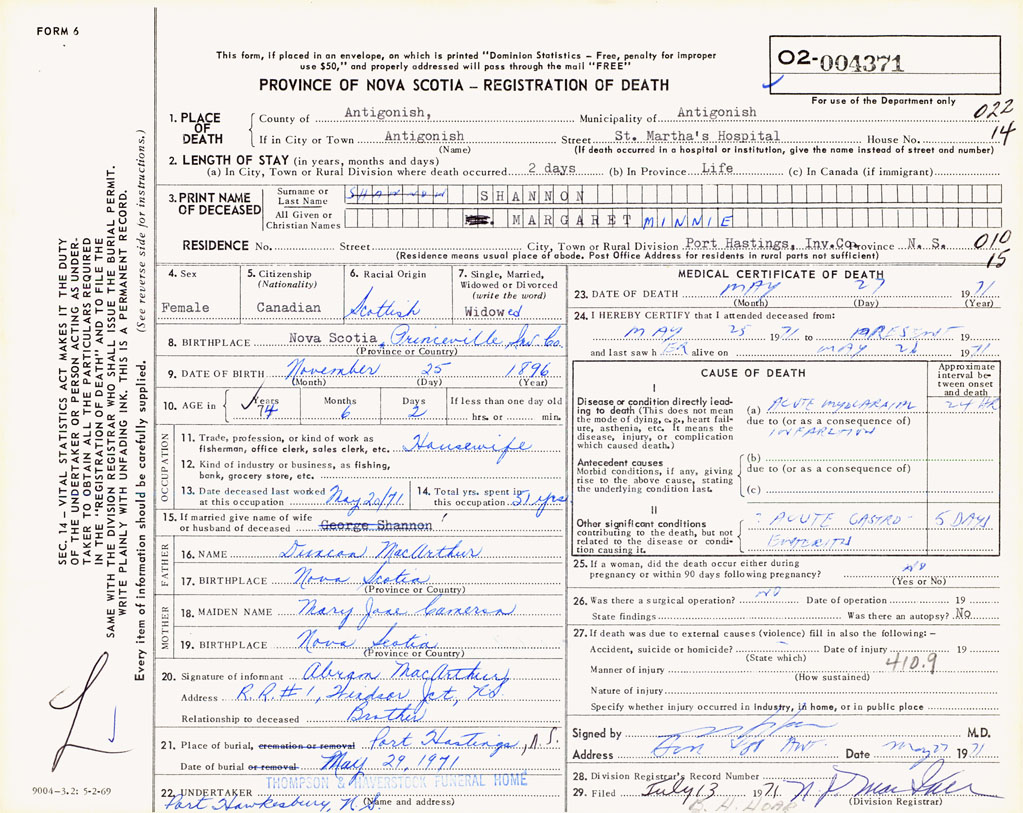 FORM 6
This form, if placed in an envelope, on which is printed "Dominion Statistics — Free, penalty for improper
use $50," and properly addressed will pass through the mail "FREE"
PROVINCE OF NOVA SCOTIA — REGISTRATION OF DEATH
O2-004371
For use of the Department only
022
14
1. PLACE OF DEATH
County of Antigonish, Municipality of Antigonish
If in City or Town Antigonish Street St. Martha's Hospital House No.
(Name) (If death occurred in a hospital or institution, give the name instead of street and number)
2. LENGTH OF STAY (in years, months and days)
(a) In City, Town or Rural Division where death occurred 2 days (b) In Province Life (c) In Canada (if immigrant)
3. PRINT NAME OF DECEASED
Surname or Last Name SHANNON SHANNON
All Given or Christian Names MARGARET MINNIE
RESIDENCE No. Street City, Town or Rural Division Port Hastings, Inv.Co. Province N. S. 010
(Residence means usual place of abode. Post Office Address for residents in rural parts not sufficient) 15
4. Sex
Female
5. Citizenship
(Nationality)
Canadian
6. Racial Origin
Scottish
7. Single, Married,
Widowed or Divorced
(write the word)
Widowed
8. BIRTHPLACE Nova Scotia, Princeville Inv Co
(Province or Country)
9. DATE OF BIRTH November 25 1896
(Month) (Day) (Year)
10. AGE in Years Months Days If less than one day old
74 6 2 hrs. or min.
OCCUPATION
11. Trade, profession, or kind of work as
fisherman, office clerk, sales clerk, etc. Housewife
12. Kind of industry or business, as fishing,
bank, grocery store, etc.
13. Date deceased last worked
at this occupation May 20/71
14. Total yrs. spent in
this occupation 51 yrs
15. If married give name of wife
or husband of deceased George Shannon
FATHER
16. NAME Duncan MacArthur
17. BIRTHPLACE Nova Scotia
(Province or Country)
MOTHER
18. MAIDEN NAME Mary Jane Cameron
19. BIRTHPLACE Nova Scotia
(Province or Country)
20. Signature of informant Abram MacArthur
Address R.R.#1, Windsor Jct, NS
Relationship to deceased Brother
21. Place of burial, cremation or removal Port Hastings, N.S.
Date of burial or removal May 29, 1971
THOMPSON & HAVERSTOCK FUNERAL HOME
22. UNDERTAKER
(Name and address)
Port Hawkesbury, N.S.
MEDICAL CERTIFICATE OF DEATH
23. DATE OF DEATH MAY 27 1971
(Month) (Day) (Year)
24. I HEREBY CERTIFY that I attended deceased from:
MAY 25 1971 to PRESENT 19
and last saw h ER alive on MAY 26 1971
CAUSE OF DEATH
Approximate
interval be-
tween onset
and death
I
Disease or condition directly lead-
ing to death (This does not mean
the mode of dying, e.g., heart fail-
ure, asthenia, etc. It means the
disease, injury, or complication
which caused death.)
(a) ACUTE MYOCARDIAL 24 HR
due to (or as a consequence of)
INFARCTION
Antecedent causes
Morbid conditions, if any, giving
rise to the above cause, stating
the underlying condition last.
(b)
due to (or as a consequence of)
(c)
II
Other significant conditions
contributing to the death, but not
related to the disease or condi-
tion causing it.
? ACUTE GASTRO- 5 DAYS
ENTERITIS
25. If a woman, did the death occur either during
pregnancy or within 90 days following pregnancy? NO
(Yes or No)
26. Was there a surgical operation? NO Date of operation 19
State findings Was there an autopsy? No
27. If death was due to external causes (violence) fill in also the following: —
Accident, suicide or homicide? Date of injury 19
(State which) 410.9
Manner of injury
(How sustained)
Nature of injury
Specify whether injury occurred in industry, in home, or in public place
Signed by M.D.
Address Date May 27 1971
28. Division Registrar's Record Number
29. Filed July 13 1971
B. H. HOAR (Division Registrar)
SEC. 14 — VITAL STATISTICS ACT MAKES IT THE DUTY
OF THE UNDERTAKER OR PERSON ACTING AS UNDER-
TAKER TO OBTAIN ALL THE PARTICULARS REQUIRED
IN THE "REGISTRATION OF DEATH" AND TO FILE THE
SAME WITH THE DIVISION REGISTRAR WHO SHALL ISSUE THE BURIAL PERMIT.
WRITE PLAINLY WITH UNFADING INK. THIS IS A PERMANENT RECORD.
Every item of information should be carefully supplied. (See reverse side for instructions.)
9004-3.2: 5-2-69